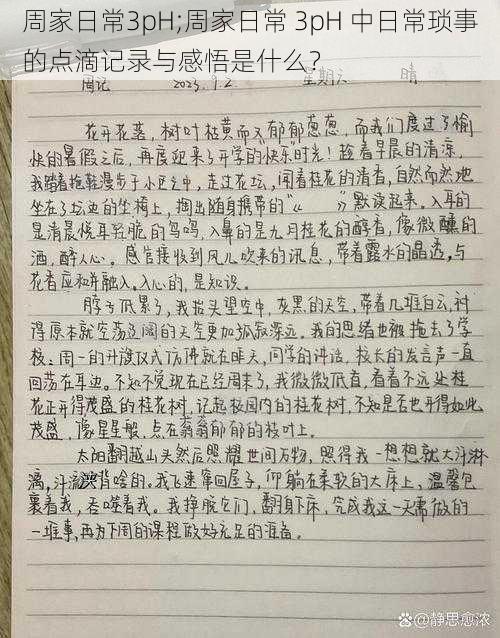 周家日常3pH;周家日常 3pH 中日常琐事
的点滴记录与感悟是什么?
周记 2023.9.2 星期六 晴
花开花落,树叶枯黄而又郁郁葱葱,而我们度过了愉
快的暑假之后,再度迎来了开学的“快乐”时光!趁着早晨的清凉,
我踏着拖鞋漫步于小区之中,走过花坛,闻着桂花的清香,自然而然地
坐在了坛边的坐椅上,掏出随身携带的“《 》默读起来。入耳的
是清晨悦耳轻脆的鸟鸣,入鼻的是九月桂花的醇香,像微醺的
酒,醉人心。感官接收到风儿吹来的讯息,带着露水的晶透,与
花香应和并融入。入心的,是知识。
脖子低累了,我抬头望空中,灰黑的天空,带着几堆白云,衬
得原本就空荡辽阔的天空更加孤寂深远。我的思绪也被拖去了学
校:周一的升旗仪式仿佛就在昨天,同学的讲话,校长的发言声一直
回荡在耳边。不知不觉现在已经周末了,我微微低首,看着不远处桂
花正开得茂盛的桂花树,记起校园内的桂花树,不知是否也开得如此
茂盛,像星星般,点在蓊蓊郁郁的枝叶上。
太阳翻越山头然后照耀世间万物,照得我一想想就大汗淋
漓,汗流浃背啥的。我飞速窜回屋子,仰躺在柔软的大床上,温馨包
裹着我,吞噬着我。我挣脱它们,翻身下床,完成我这一天需做的
一堆事,再为下周的课程做好充足的准备。
@静思愈浓